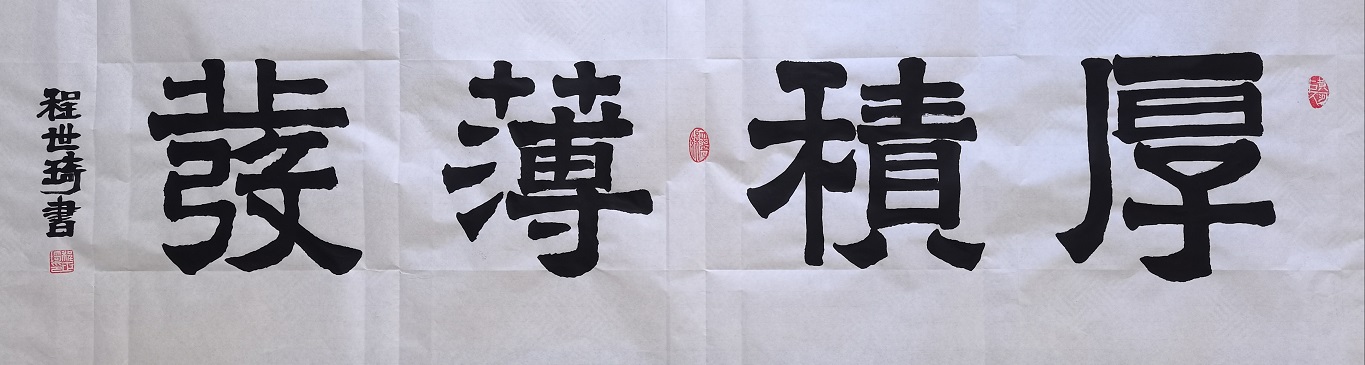 厚積薄發
程世琦書